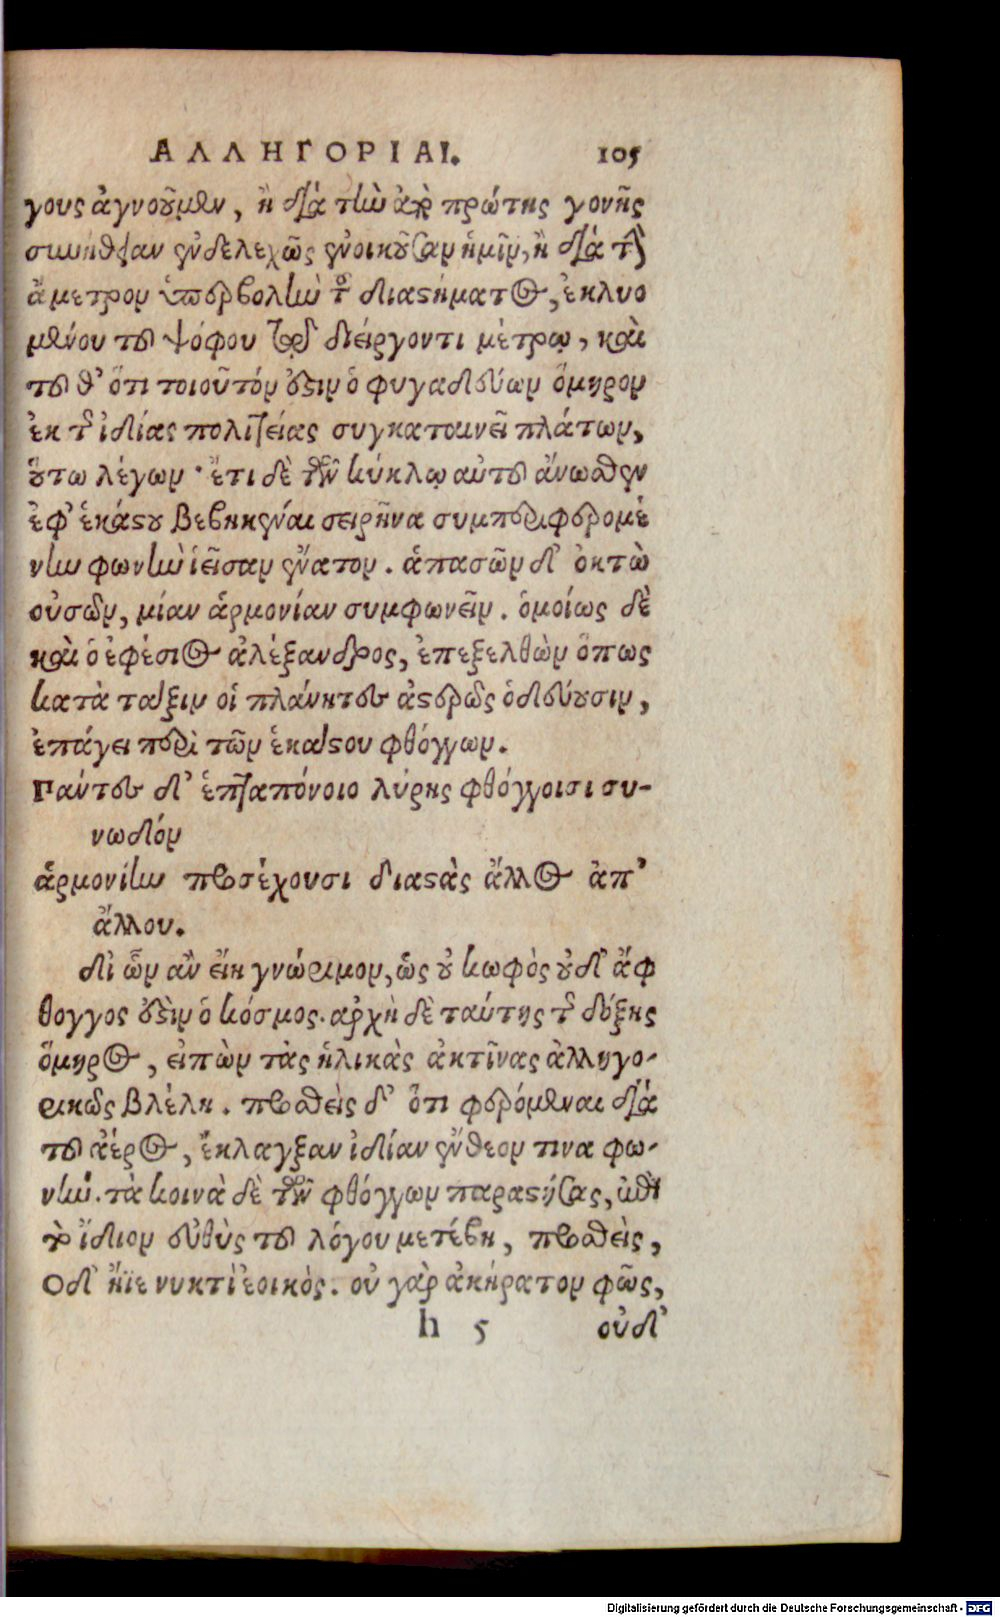 ΑΛΛΗΓΟΡΙΑΙ. 105
γους ἀγνοῦμεν, ἢ διὰ τὴν ἀπὸ πρώτης γονῆς
συνήθειαν ἐνδελεχῶς ἐνοικοῦσαν ἡμῖν, ἢ διὰ τὴν
ἄμετρον ὑπερβολὴν τοῦ διαστήματος, ἐκλυο
μένου τοῦ ψόφου τῷ διείργοντι μέτρῳ, καὶ
τοῦθ' ὅτι τοιοῦτόν ἐστιν ὁ φυγαδεύων ὅμηρον
ἐκ τῆς ἰδίας πολιτείας συγκαταινεῖ πλάτων,
οὕτω λέγων· ἔτι δὲ τῶν κύκλῳ αὐτοῦ ἄνωθεν
ἐφ' ἑκάστου βεβηκέναι σειρῆνα συμπεριφερομέ
νην φωνὴν ἱεῖσαν ἕνατον. ἁπασῶν δ' ὀκτὼ
οὐσῶν, μίαν ἁρμονίαν συμφωνεῖν. ὁμοίως δὲ
καὶ ὁ ἐφέσιος ἀλέξανδρος, ἐπεξελθὼν ὅπως
κατὰ τάξιν οἱ πλάνητες ἀστέρες ὁδεύουσιν,
ἐπάγει περὶ τῶν ἑκάστου φθόγγων.
Πάντες δ' ἑπταπόνοιο λύρης φθόγγοισι συ-
νωδόν
ἁρμονίην προσέχουσι διαστὰς ἄλλος ἀπ'
ἄλλου.
δι ὧν ἂν εἴη γνώριμον, ὡς οὐ κωφὸς οὐδ' ἄφ
θογγος ἐστὶν ὁ κόσμος. ἀρχὴ δὲ ταύτης τῆς δόξης
ὅμηρος, εἰπὼν τὰς ἡλικὰς ἀκτῖνας ἀλληγο-
ρικῶς βλέλη. προθεὶς δ' ὅτι φερόμεναι διὰ
τοῦ ἀέρος, ἔκλαγξαν ἰδίαν ἔνθεον τινα φω-
νὴν. τὰ κοινὰ δὲ τῶν φθόγγων παραστήσας, ἐπὶ
τὸ ἴδιον εὐθὺς τοῦ λόγου μετέβη, προθεὶς,
Οδ' ἤϊε νυκτὶ ἐοικὸς. οὐ γὰρ ἀκήρατον φῶς,
h 5 οὐδ'
Digitalisierung gefördert durch die Deutsche Forschungsgemeinschaft - DFG